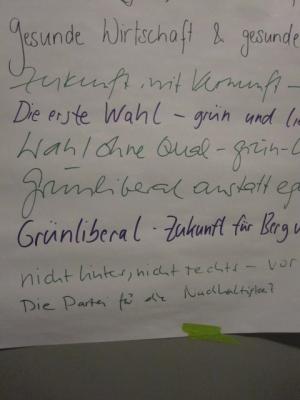 gesunde Wirtschaft & gesunde
Zukunft mit Vernunft -
Die erste Wahl - grün und li
Wahl ohne Qual - grün-l
Grünliberal anstatt eg
Grünliberal - Zukunft für Berg u
nicht links, nicht rechts - vor
Die Partei für die Nachhaltigkeit